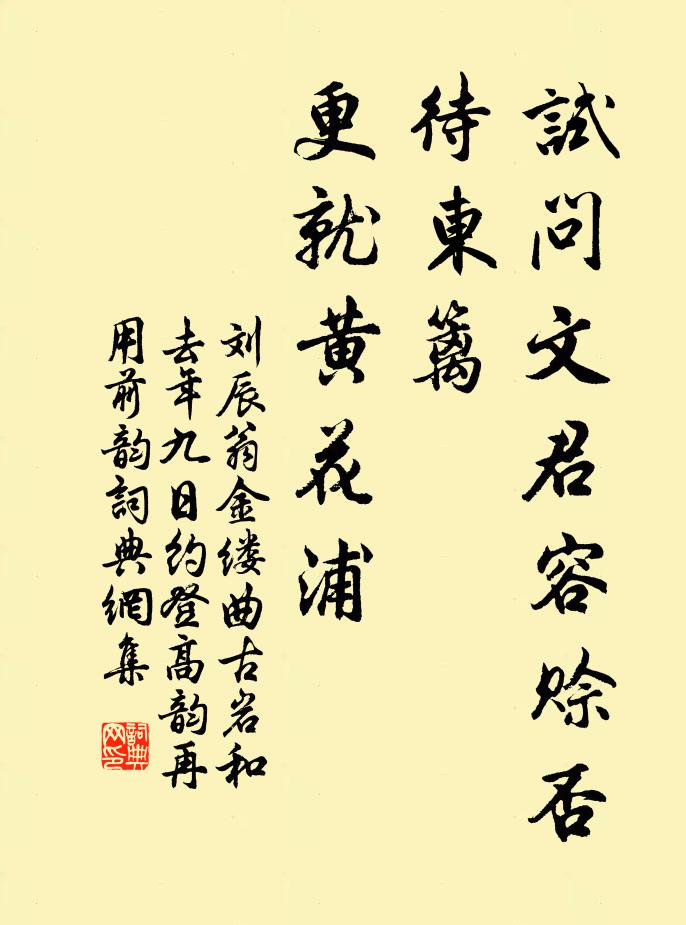 試問文君容賒否
待東籬
更就黄花浦
刘辰翁金缕曲古岩和
去年九日约登高韵再
用前韵詞典網集
詞典
网印